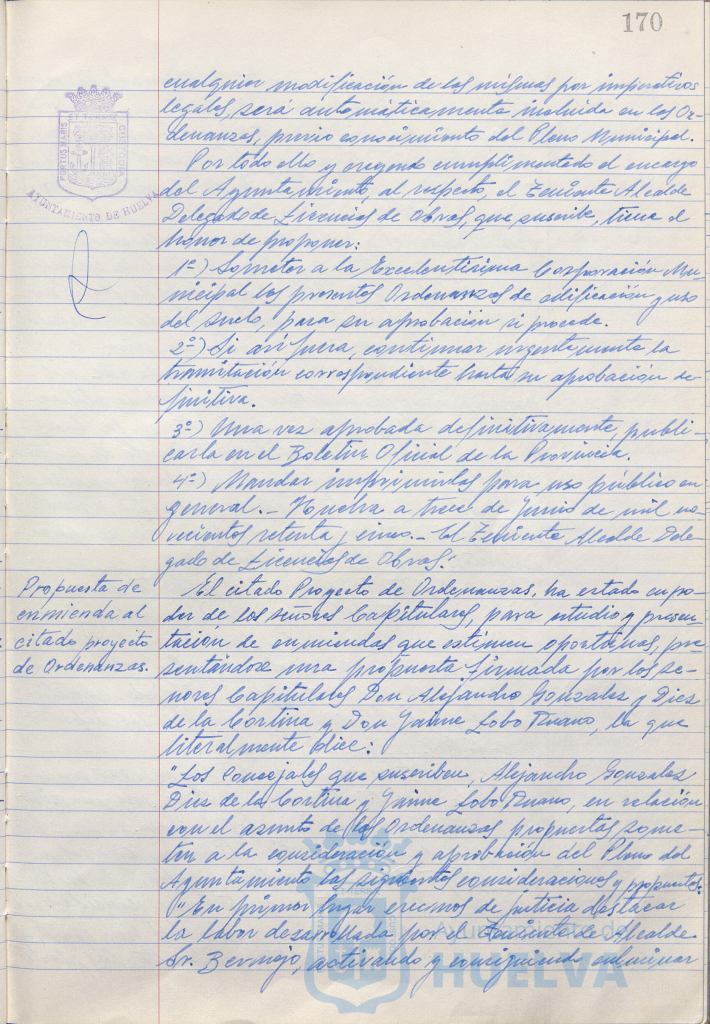 170
cualquier modificación de las mismas por imperativos
legales, será automáticamente incluida en las Or-
denanzas, previo conocimiento del Pleno Municipal.
Por todo ello y creyendo cumplimentado el encargo
del Ayuntamiento, al respecto, el Teniente Alcalde
Delegado de Licencias de Obras, que suscribe, tiene el
honor de proponer:
1º) Someter a la Excelentísima Corporación Mu-
nicipal las presentes Ordenanzas de edificación y uso
del suelo, para su aprobación si procede.
2º) Si así fuera, continuar urgentemente la
tramitación correspondiente hasta su aprobación de-
finitiva.
3º) Una vez aprobada definitivamente, publi-
carla en el Boletín Oficial de la Provincia.
4º) Mandar imprimirlas para uso público en
general.- Huelva a tres de Junio de mil no-
vecientos setenta y cinco.- El Teniente Alcalde Dele-
gado de Licencias de Obras."
Propuesta de
enmienda al
citado proyecto
de Ordenanzas.
El citado Proyecto de Ordenanzas, ha estado en po-
der de los señores Capitulares, para estudio y presen-
tación de enmiendas que estimen oportunas, pre-
sentándose una propuesta firmada por los se-
ñores Capitulares Don Alejandro Gonzalez y Diez
de la Cortina y Don Jaime Lobo, la que
literalmente dice:
"Los Concejales que suscriben, Alejandro Gonzalez
Diez de la Cortina y Jaime Lobo, en relación
con el asunto de las Ordenanzas propuestas some-
ten a la consideración y aprobación del Pleno del
Ayuntamiento las siguientes consideraciones y propuestas:
"En primer lugar creemos de justicia destacar
la labor desarrollada por el Teniente de Alcalde
Sr. Bermejo, activando y consiguiendo culminar
PORTUS MARIS
CUSTODIA
AYUNTAMIENTO DE HUELVA
Ayuntamiento de
HUELVA